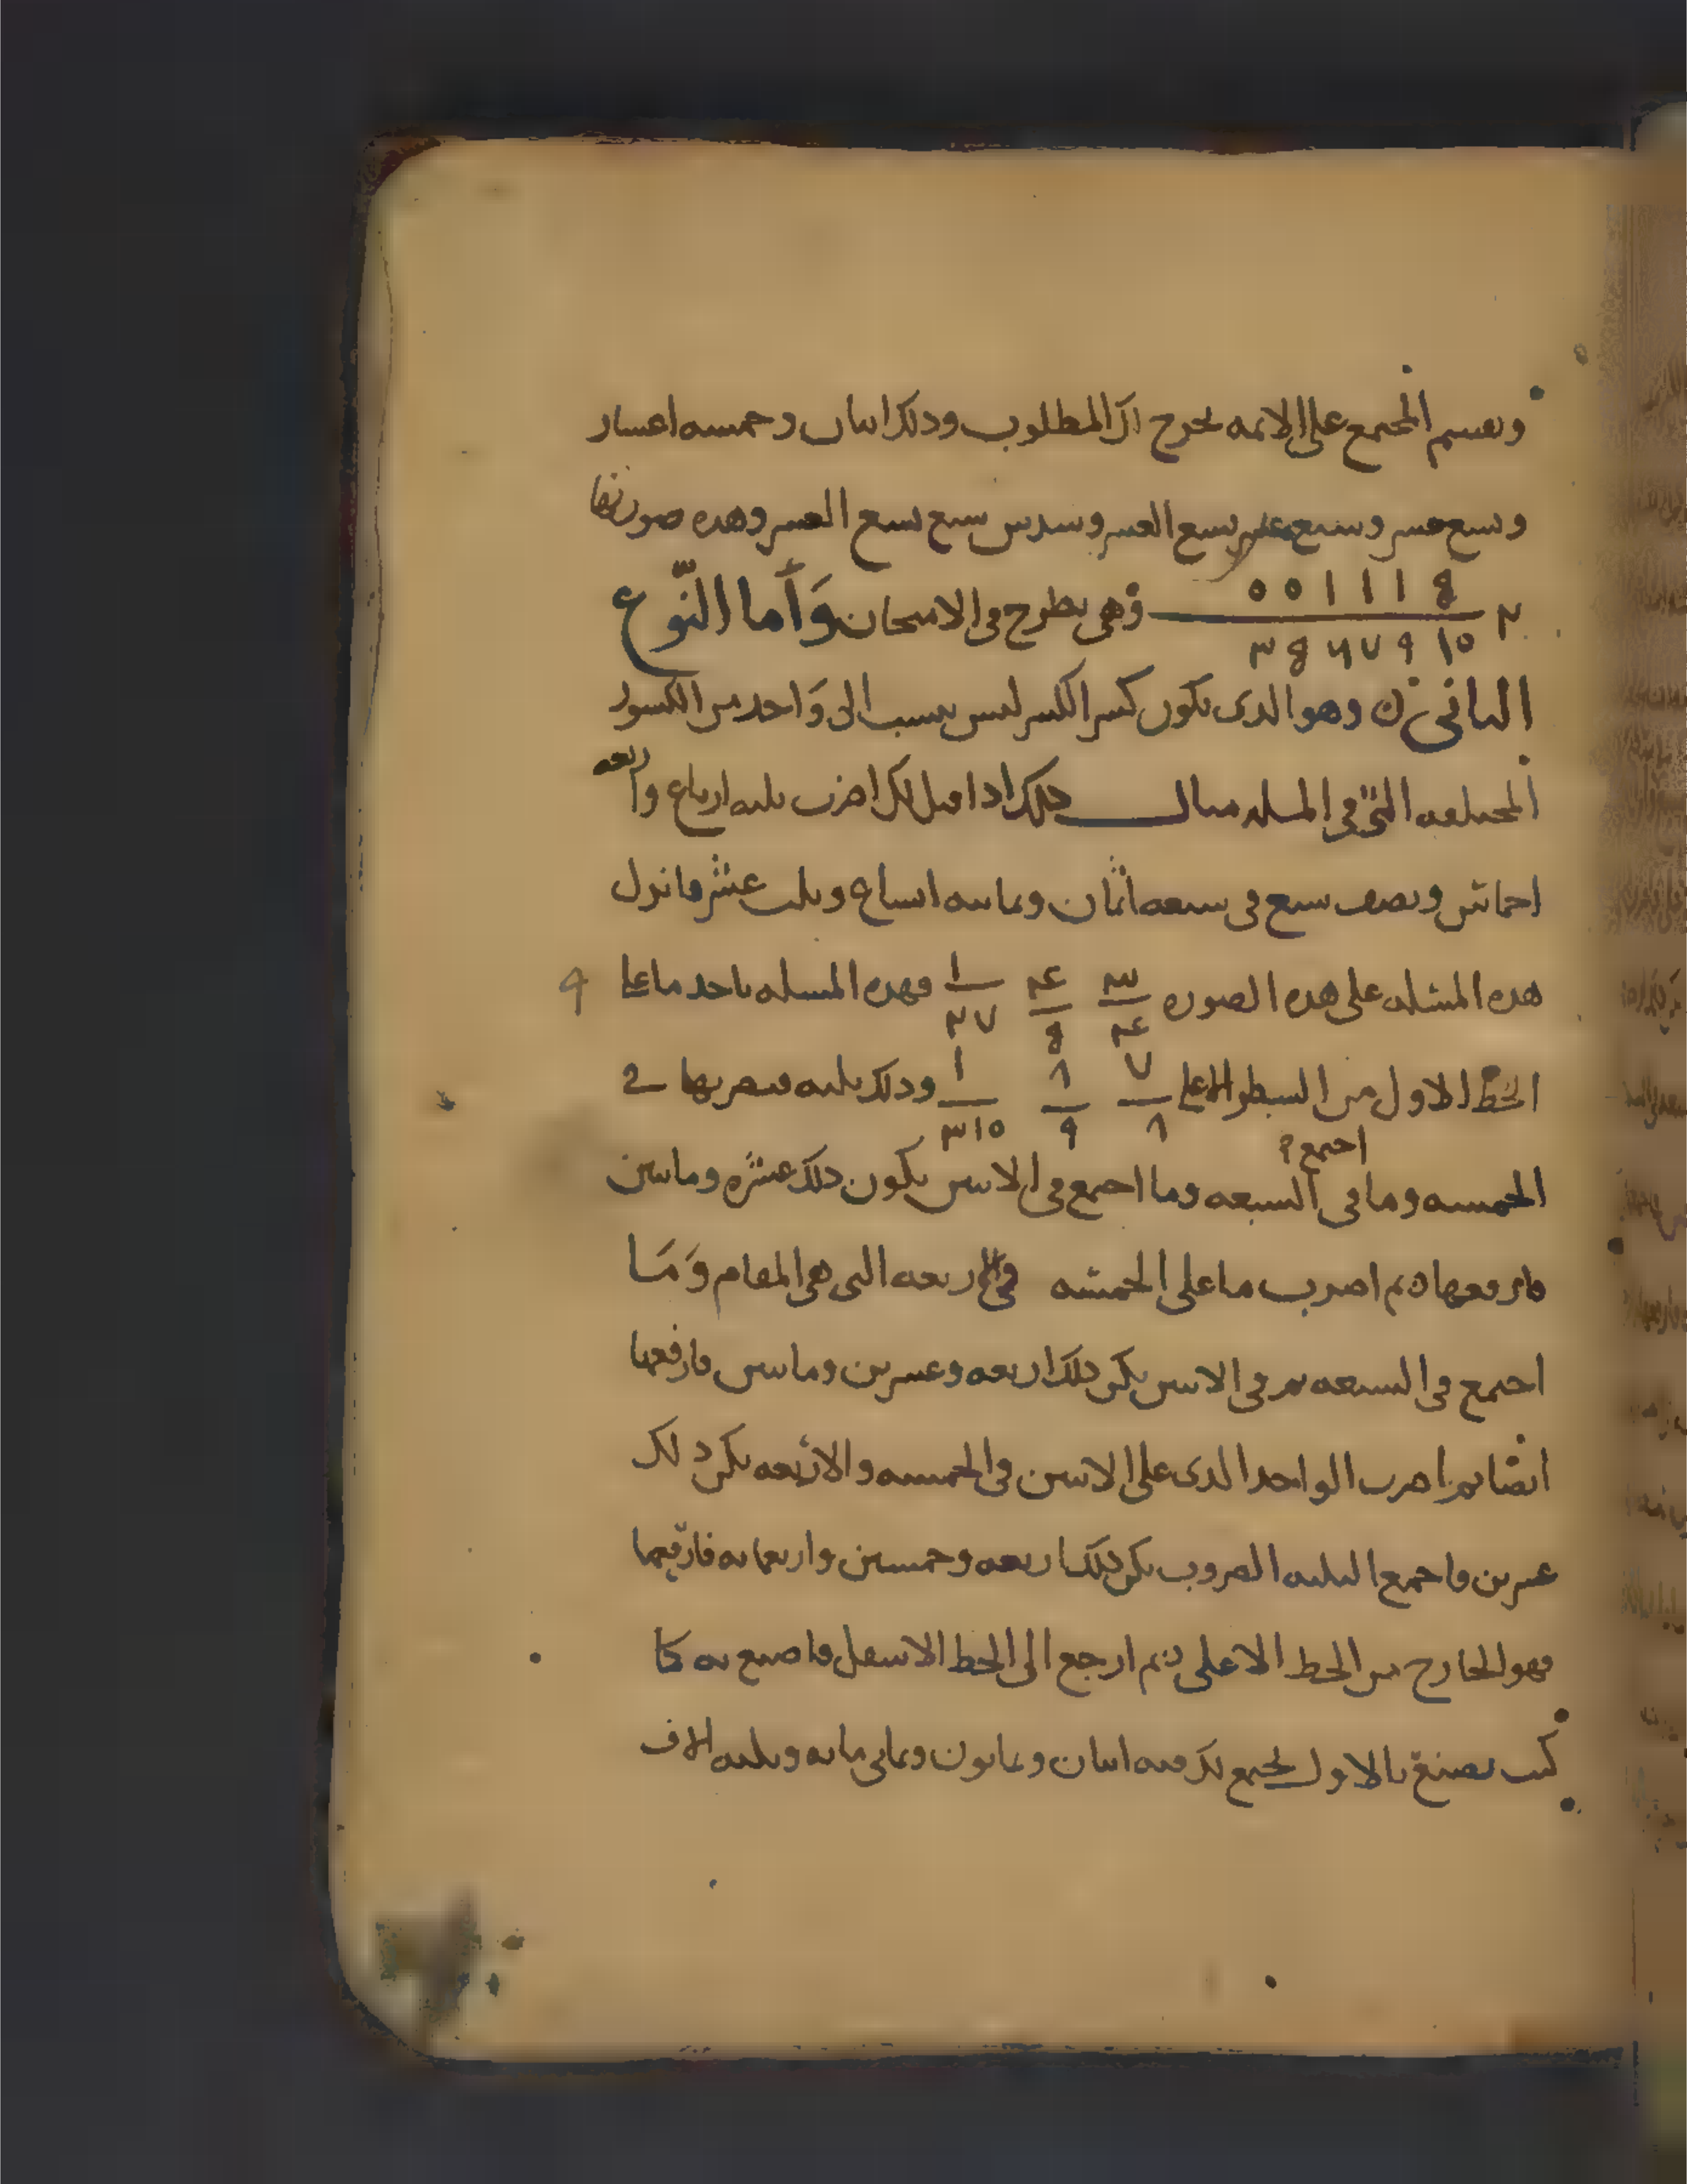 ونقسم المجتمع على الائمه يخرج لك المطلوب وذلك اثنان وخمسه اعشار
وتسع عشر وسبع عشر تسع العشر وسدس سبع تسع العشر وهذه صورتها
٢ ٥ ١ ١ ١ ٥ ٥ وهي بطرح في الامتحان وَأَما النّوع
١٥ ٩ ٧ ٦ ٥ ٣
الثاني ن وهو الذى يكون كسر الكسر ليس ينسب الى وَاحد من الكسور
المختلفه التى في المسله مثال ذلك اذا قيل لك اضرب ثلثه ارباع واربعه
اخماس ونصف سبع في سبعه اثمان وثمانيه اتساع وثلث عشر فانزل
هذه المسئله على هذه الصوره ٣/٤ ٤/٥ ١/٢٧ فهذه المسله ناخذ ما على ٩
الخط الاول من السطر الاعلى ٧/٨ ٨/٩ ١/٣١٥ وذلك ثلثه فتضربها في
اجتمع
الخمسه وما في السبعه وما اجتمع في الاثنين يكون ذلك عشره ومايتين
فارفعها ن ثم اضرب ما على الخمسه في الاربعه التى هي المقام وَمَا
اجتمع في السبعه ثم في الاثنين يكن ذلك اربعه وعشرين ومايتين فارفعها
ايضا ثم اضرب الواحد الذى على الاثنين في الخمسه والاربعه يكن ذلك
عشرين فاجمع الثلثه الضروب يكن ذلك اربعه وخمسين واربعمايه فارفعها
فهو الخارج من الخط الاعلى ن ثم ارجع الى الخط الاسفل فاصنع به كما
كنت تصنع بالاول يجتمع لك منه اثنان وثمانون وثماني مايه وثلثه الاف